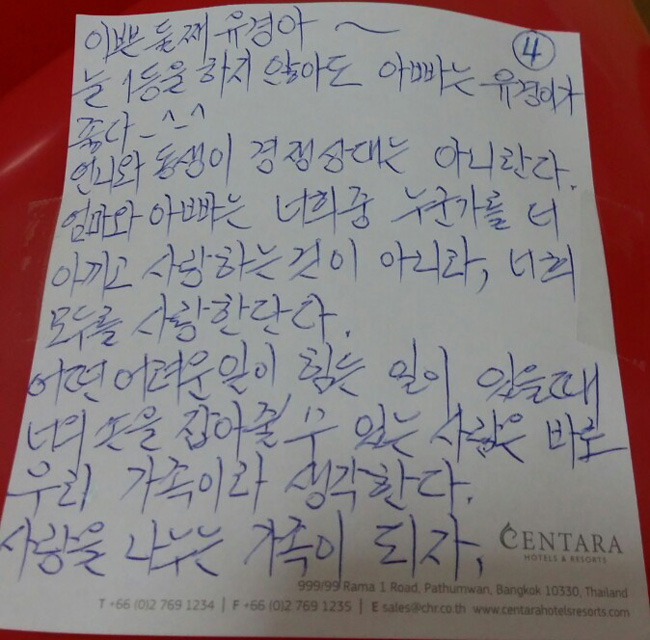 이쁜 둘째 유경아 ~
④
늘 1등을 하지 않아도 아빠는 유경이가
좋다 -^-^
언니와 동생이 경쟁상대는 아니란다.
엄마와 아빠는 너희중 누군가를 더
아끼고 사랑하는 것이 아니라, 너희
모두를 사랑한단다.
어떤 어려운일이 힘든 일이 있을때
너의 손을 잡아줄 수 있는 사람은 바로
우리 가족이라 생각한다.
사랑을 나누는 가족이 되자,
CENTARA
HOTELS & RESORTS
999/99 Rama 1 Road, Pathumwan, Bangkok 10330, Thailand
T +66 (0)2 769 1234 | F +66 (0)2 769 1235 | E sales@chr.co.th www.centarahotelsresorts.com